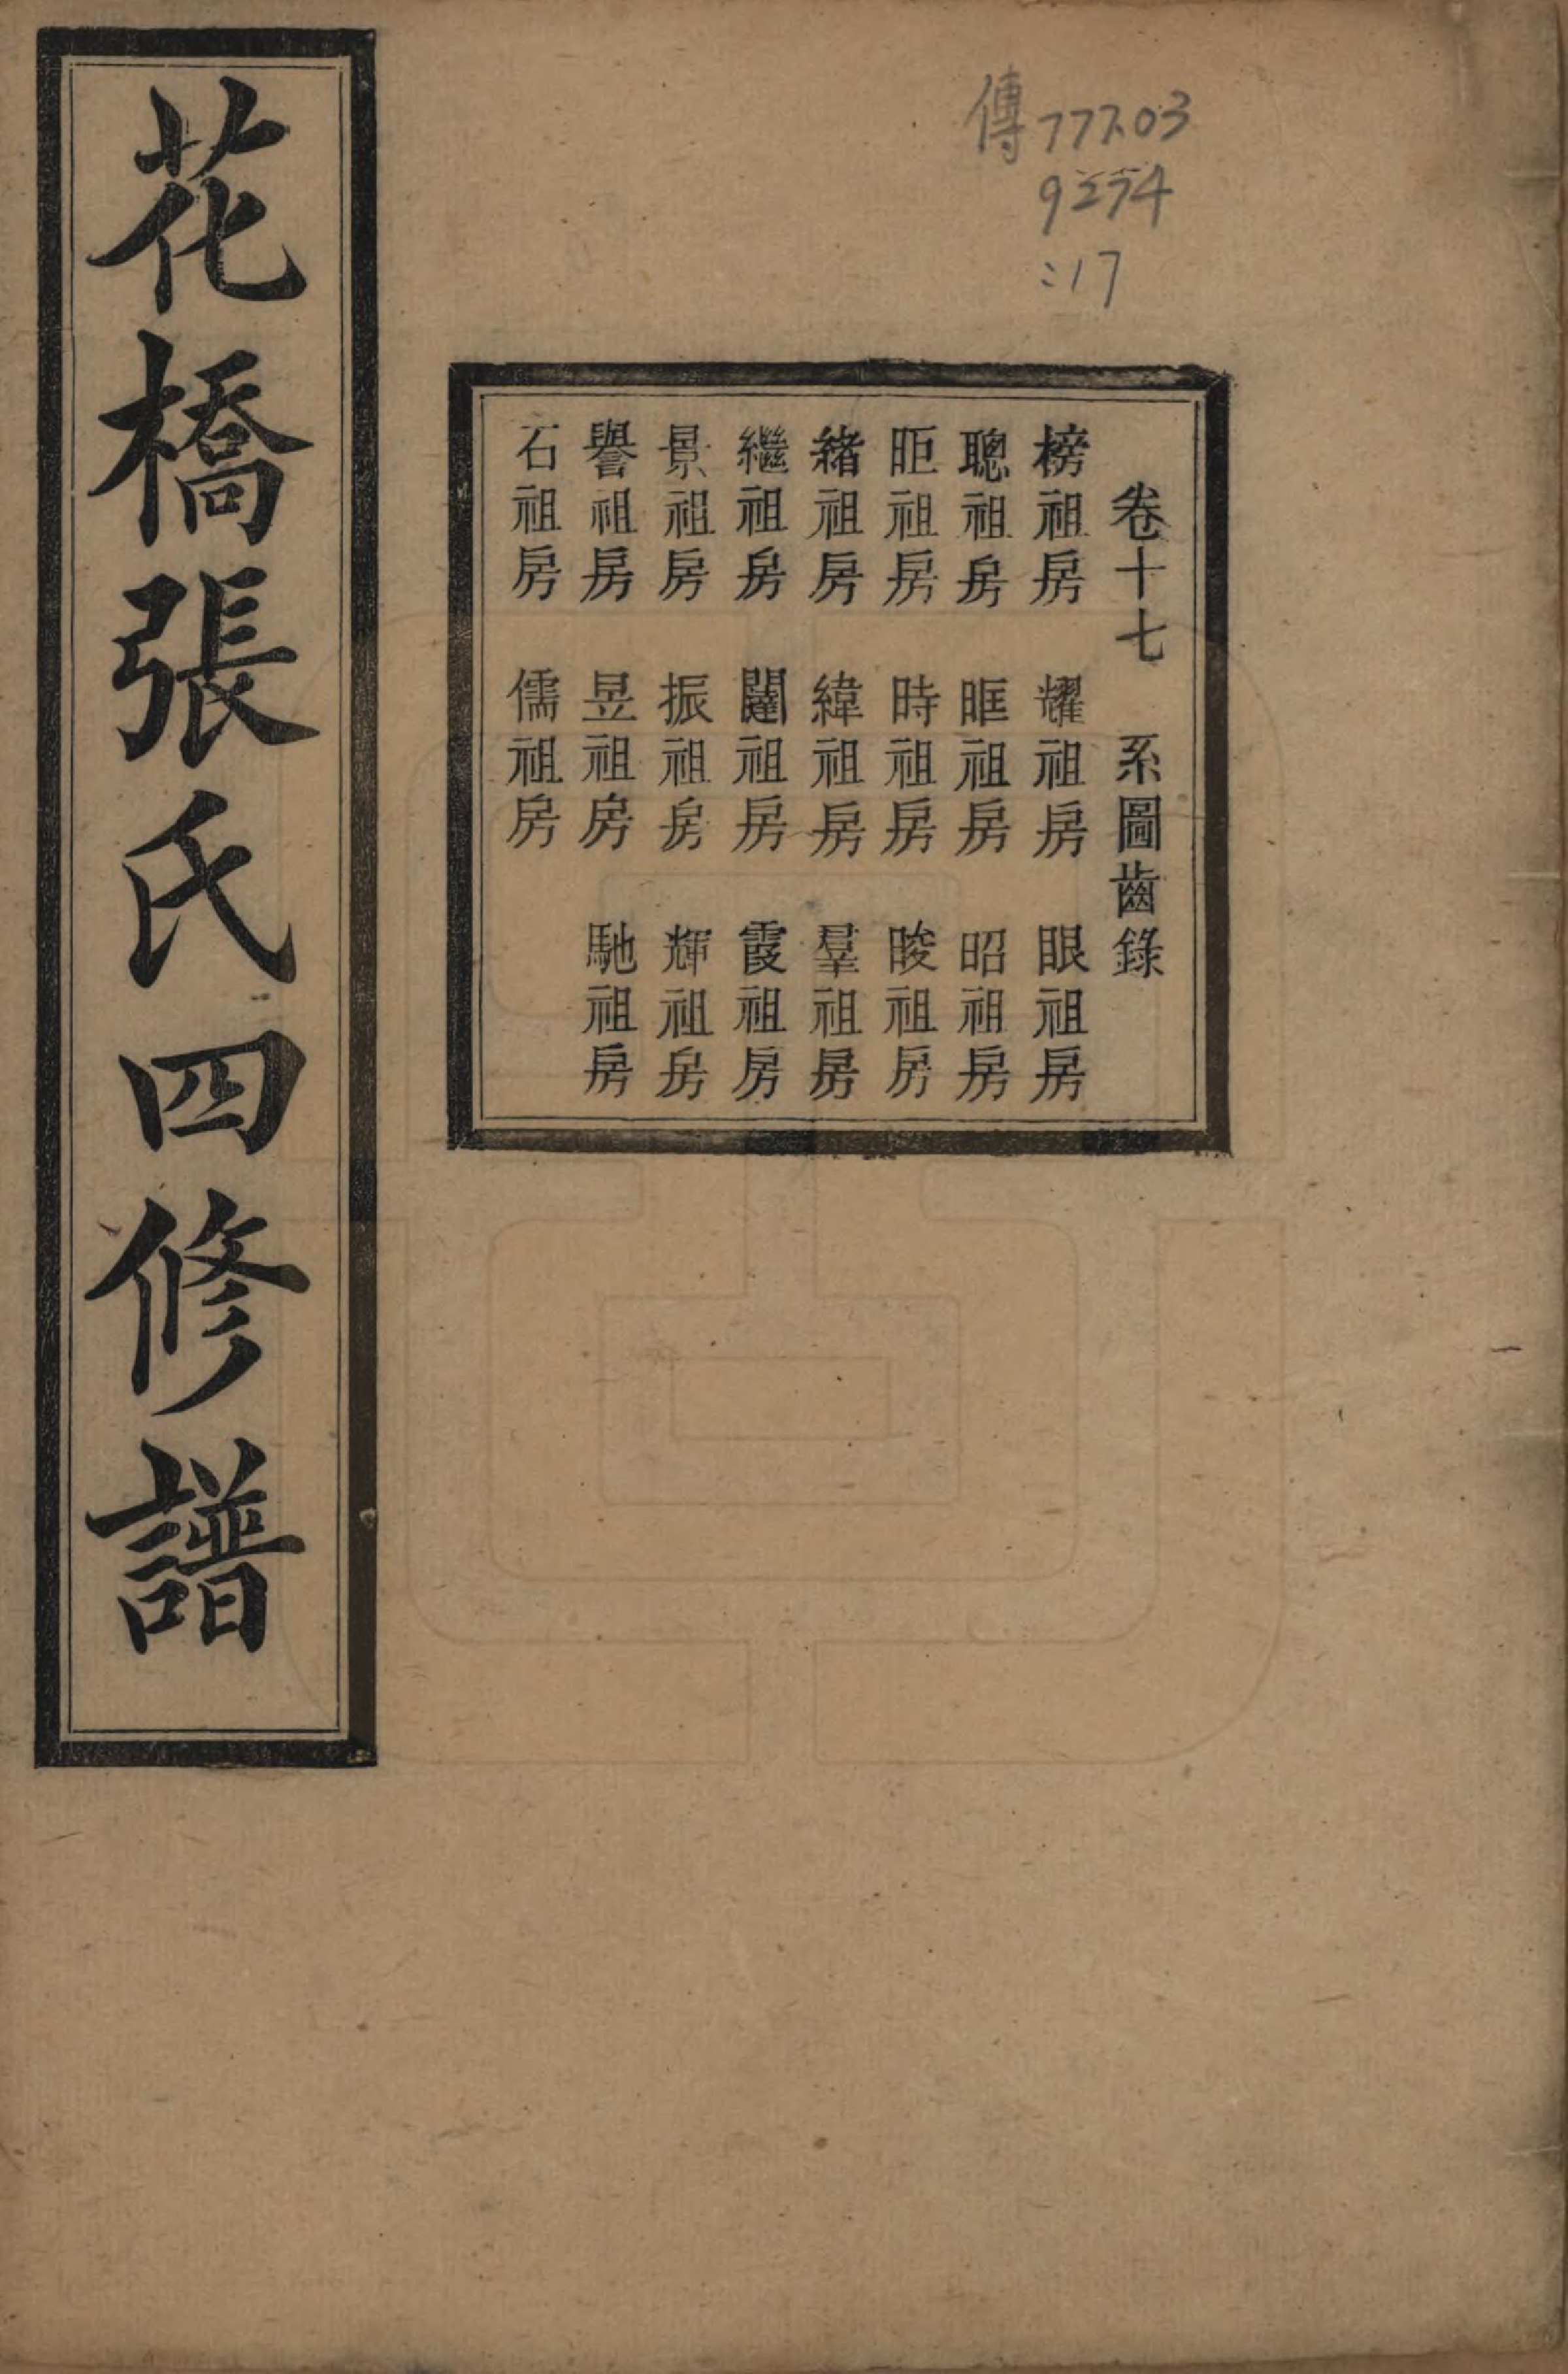 傳777.03
9274
:17
卷十七 系圖齒錄
榜祖房 耀祖房 眼祖房
聰祖房 眶祖房 昭祖房
昛祖房 時祖房 晙祖房
緒祖房 緯祖房 羣祖房
繼祖房 闥祖房 霞祖房
景祖房 振祖房 輝祖房
譽祖房 昱祖房 馳祖房
石祖房 儒祖房
花橋張氏四修譜